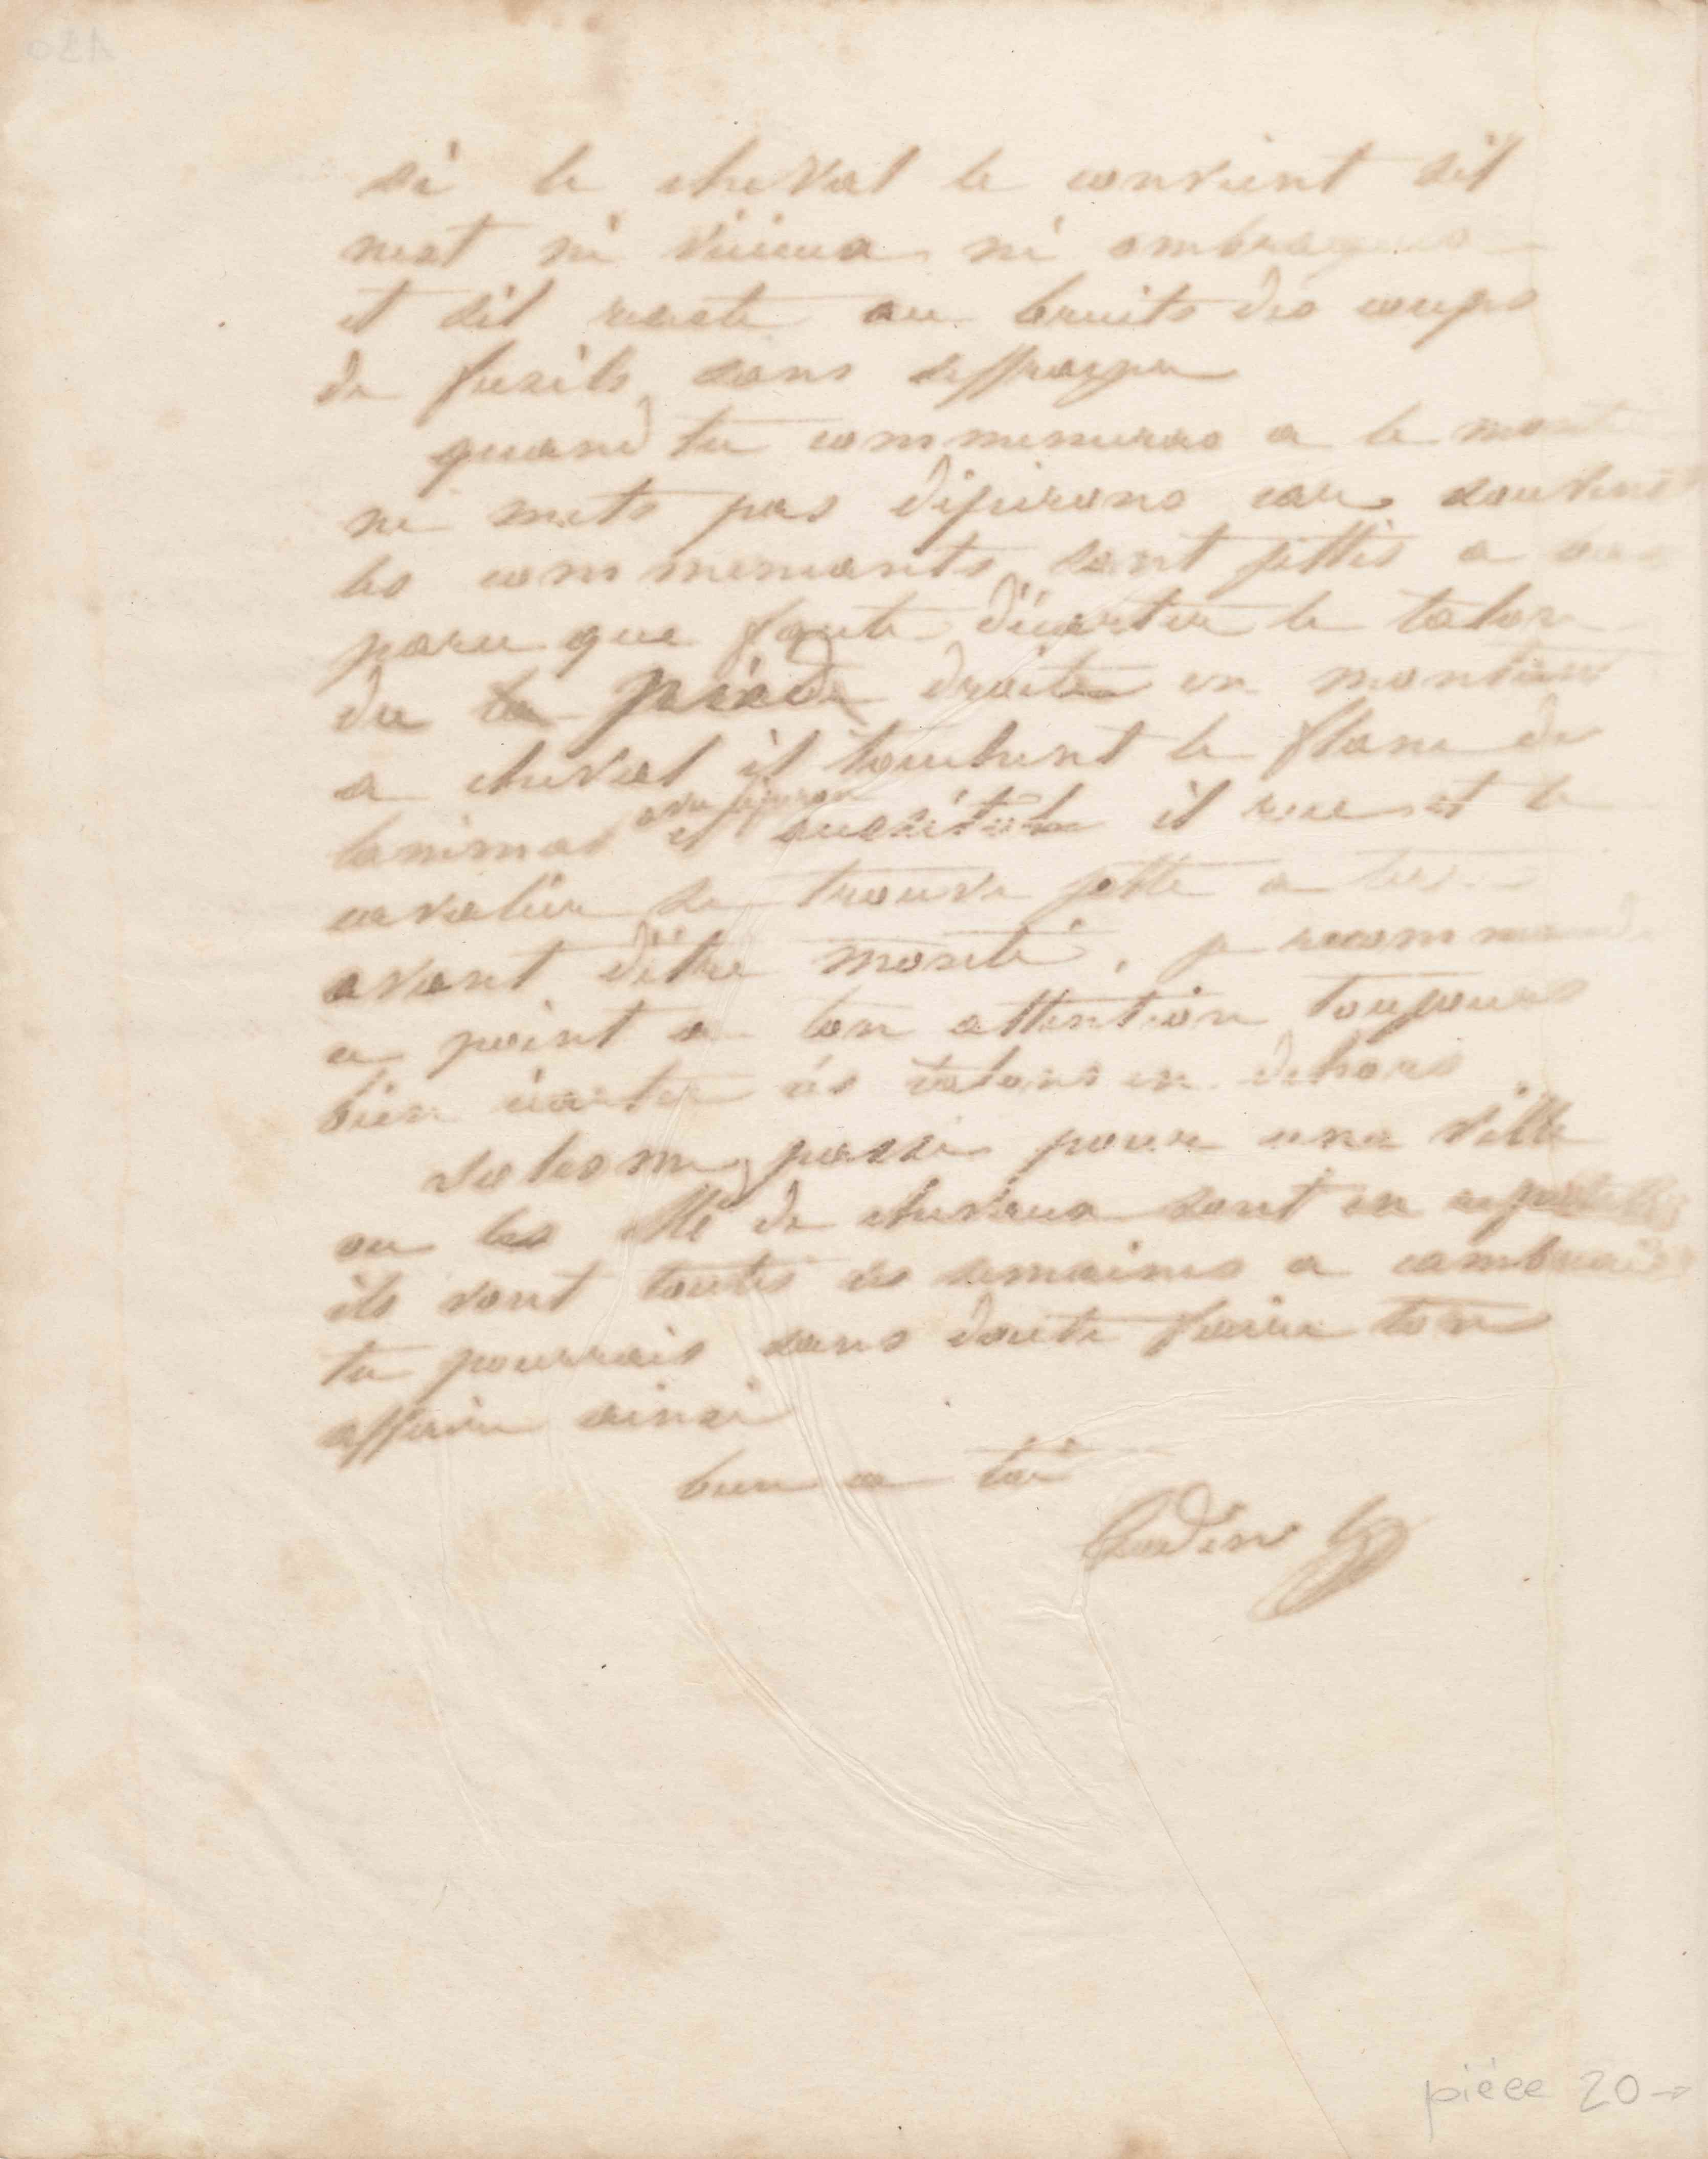 si le cheval te convient sil
nest ni vicieux ni ombrageux
et sil reste au bruits des coups
de fusils sans seffrayer
quand tu commenceras a le monter
ne mets pas déperons car souvent
les commencants sont jettés a
parce que faute décarter le talon
du pied droit en montant
a cheval il touchent le flanc de
lanimal avec léperon et aussitot il rue et le
cavalier se trouve jetté a terre
avant dêtre monté, je recommande
ce point a ton attention toujours
bien écarter les talons en dehors
Solesme passe pour une ville
ou les Md de chevaux sont en
ils vont toutes les semaines a cambrai
tu pourrais sans doute faire ton
affaire ainsi
bien a toi
Godin
pièce 20